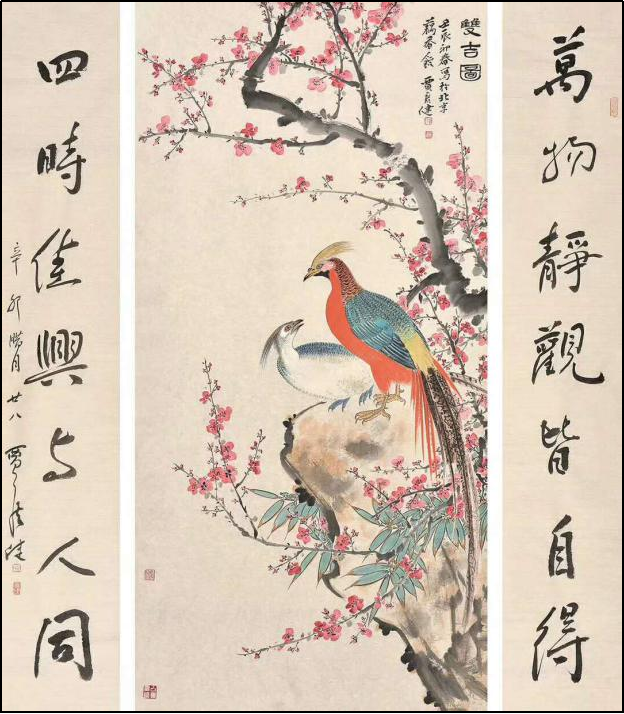 萬物靜觀皆自得
雙吉圖
壬辰初春寫於北京
賈廣健
四時佳興与人同
辛卯臘月廿八